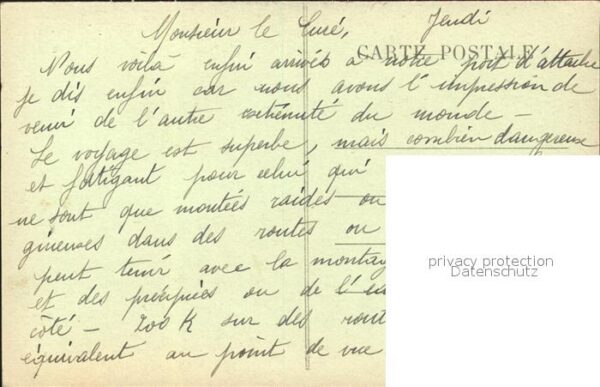 Monsieur le Curé, Jeudi
CARTE POSTALE
Nous voilà enfin arrivés à notre port d'attache
je dis enfin car nous avons l'impression de
venir de l'autre extrémité du monde –
Le voyage est superbe, mais combien dangereuse
et fatigant pour celui qui
ne sont que montées raides ou
gineuses dans des routes ou
peut tenir avec la montag
et des précipices ou de l'eau
côté – 200 K sur des rout
équivalent au point de vue
privacy protection
Datenschutz